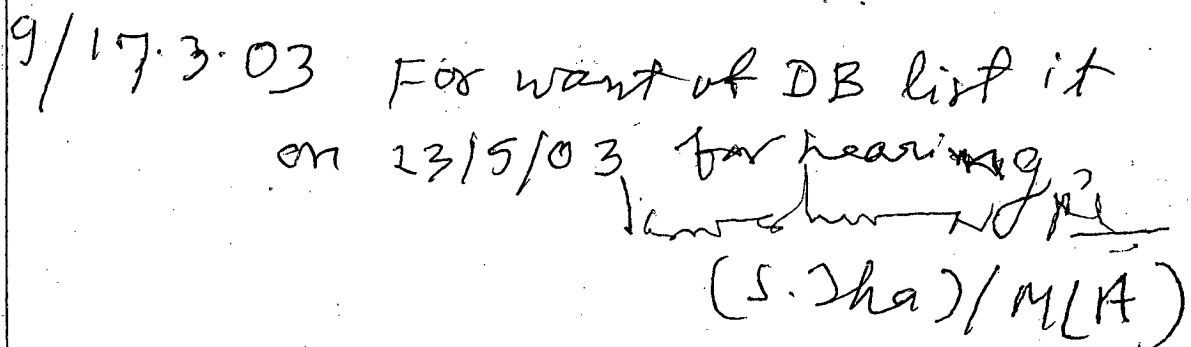 9/17.3.03 For want of DB list it
on 23/5/03 for hearing
(S. Jha)/M(A)